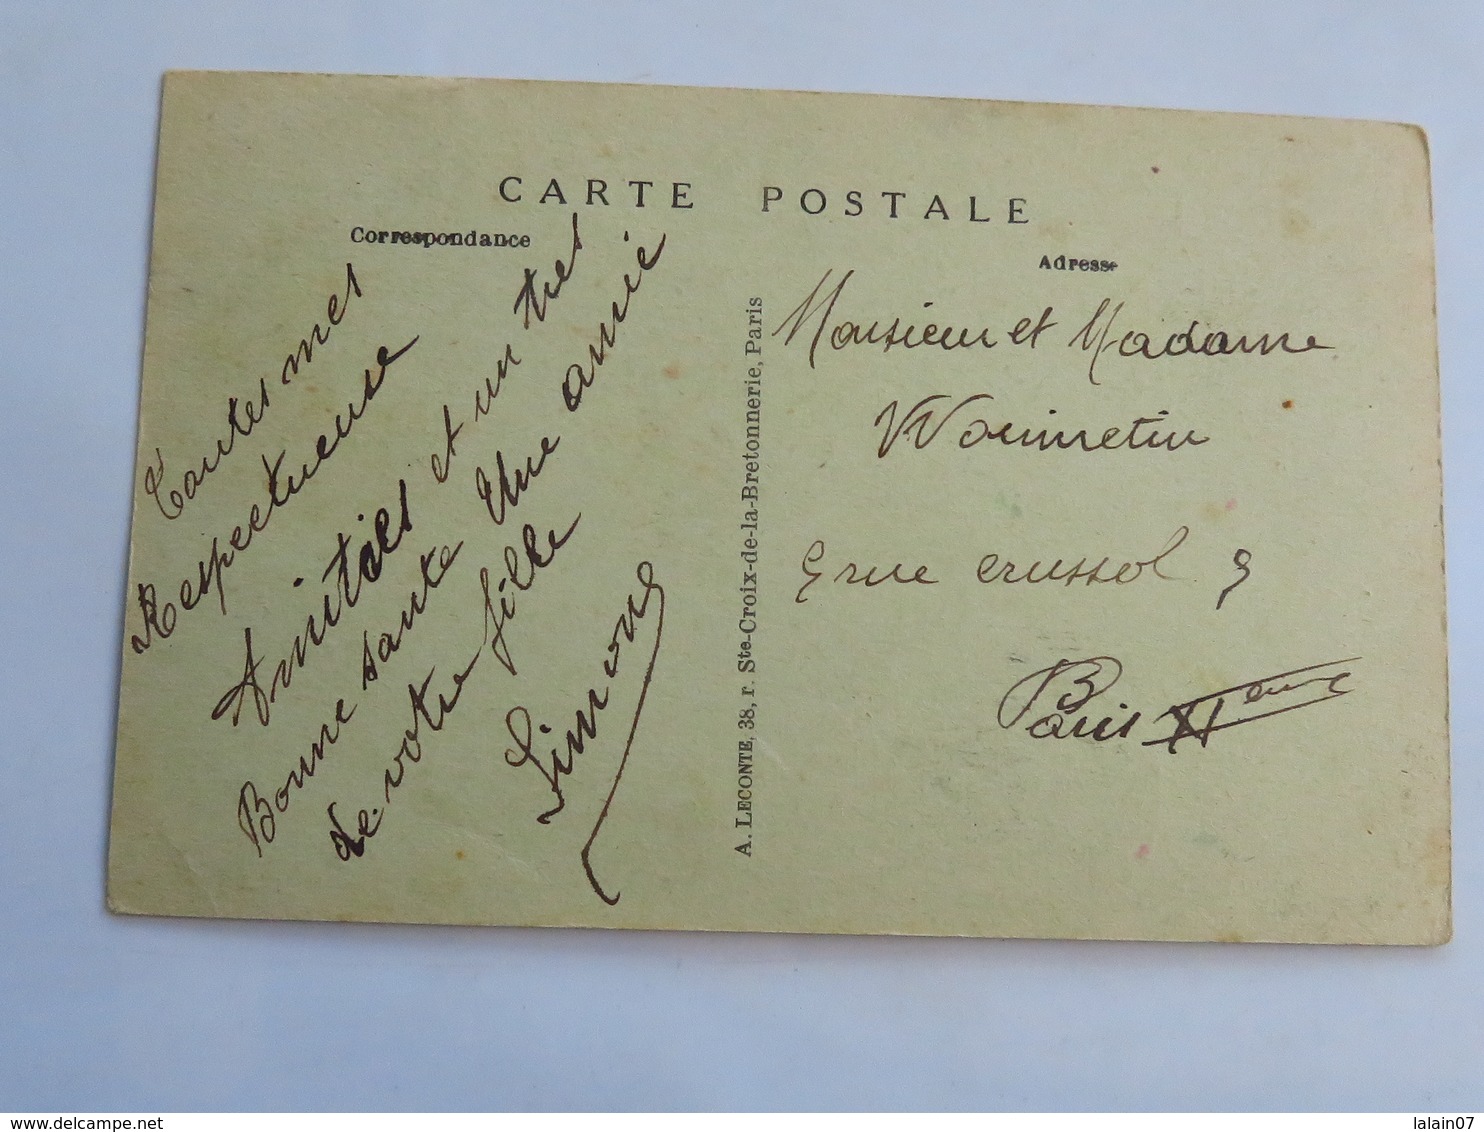 CARTE POSTALE
Correspondance
Adresse
Toutes mes
Respectueuse
Amitiés et un tres
Bonne sante Une amie
de votre fille
Simone
A. LECONTE, 38, r. Ste-Croix-de-la-Bretonnerie, Paris
Monsieur et Madame
9 rue crussol 9
Paris XI eme
delcampe.net
lalain07